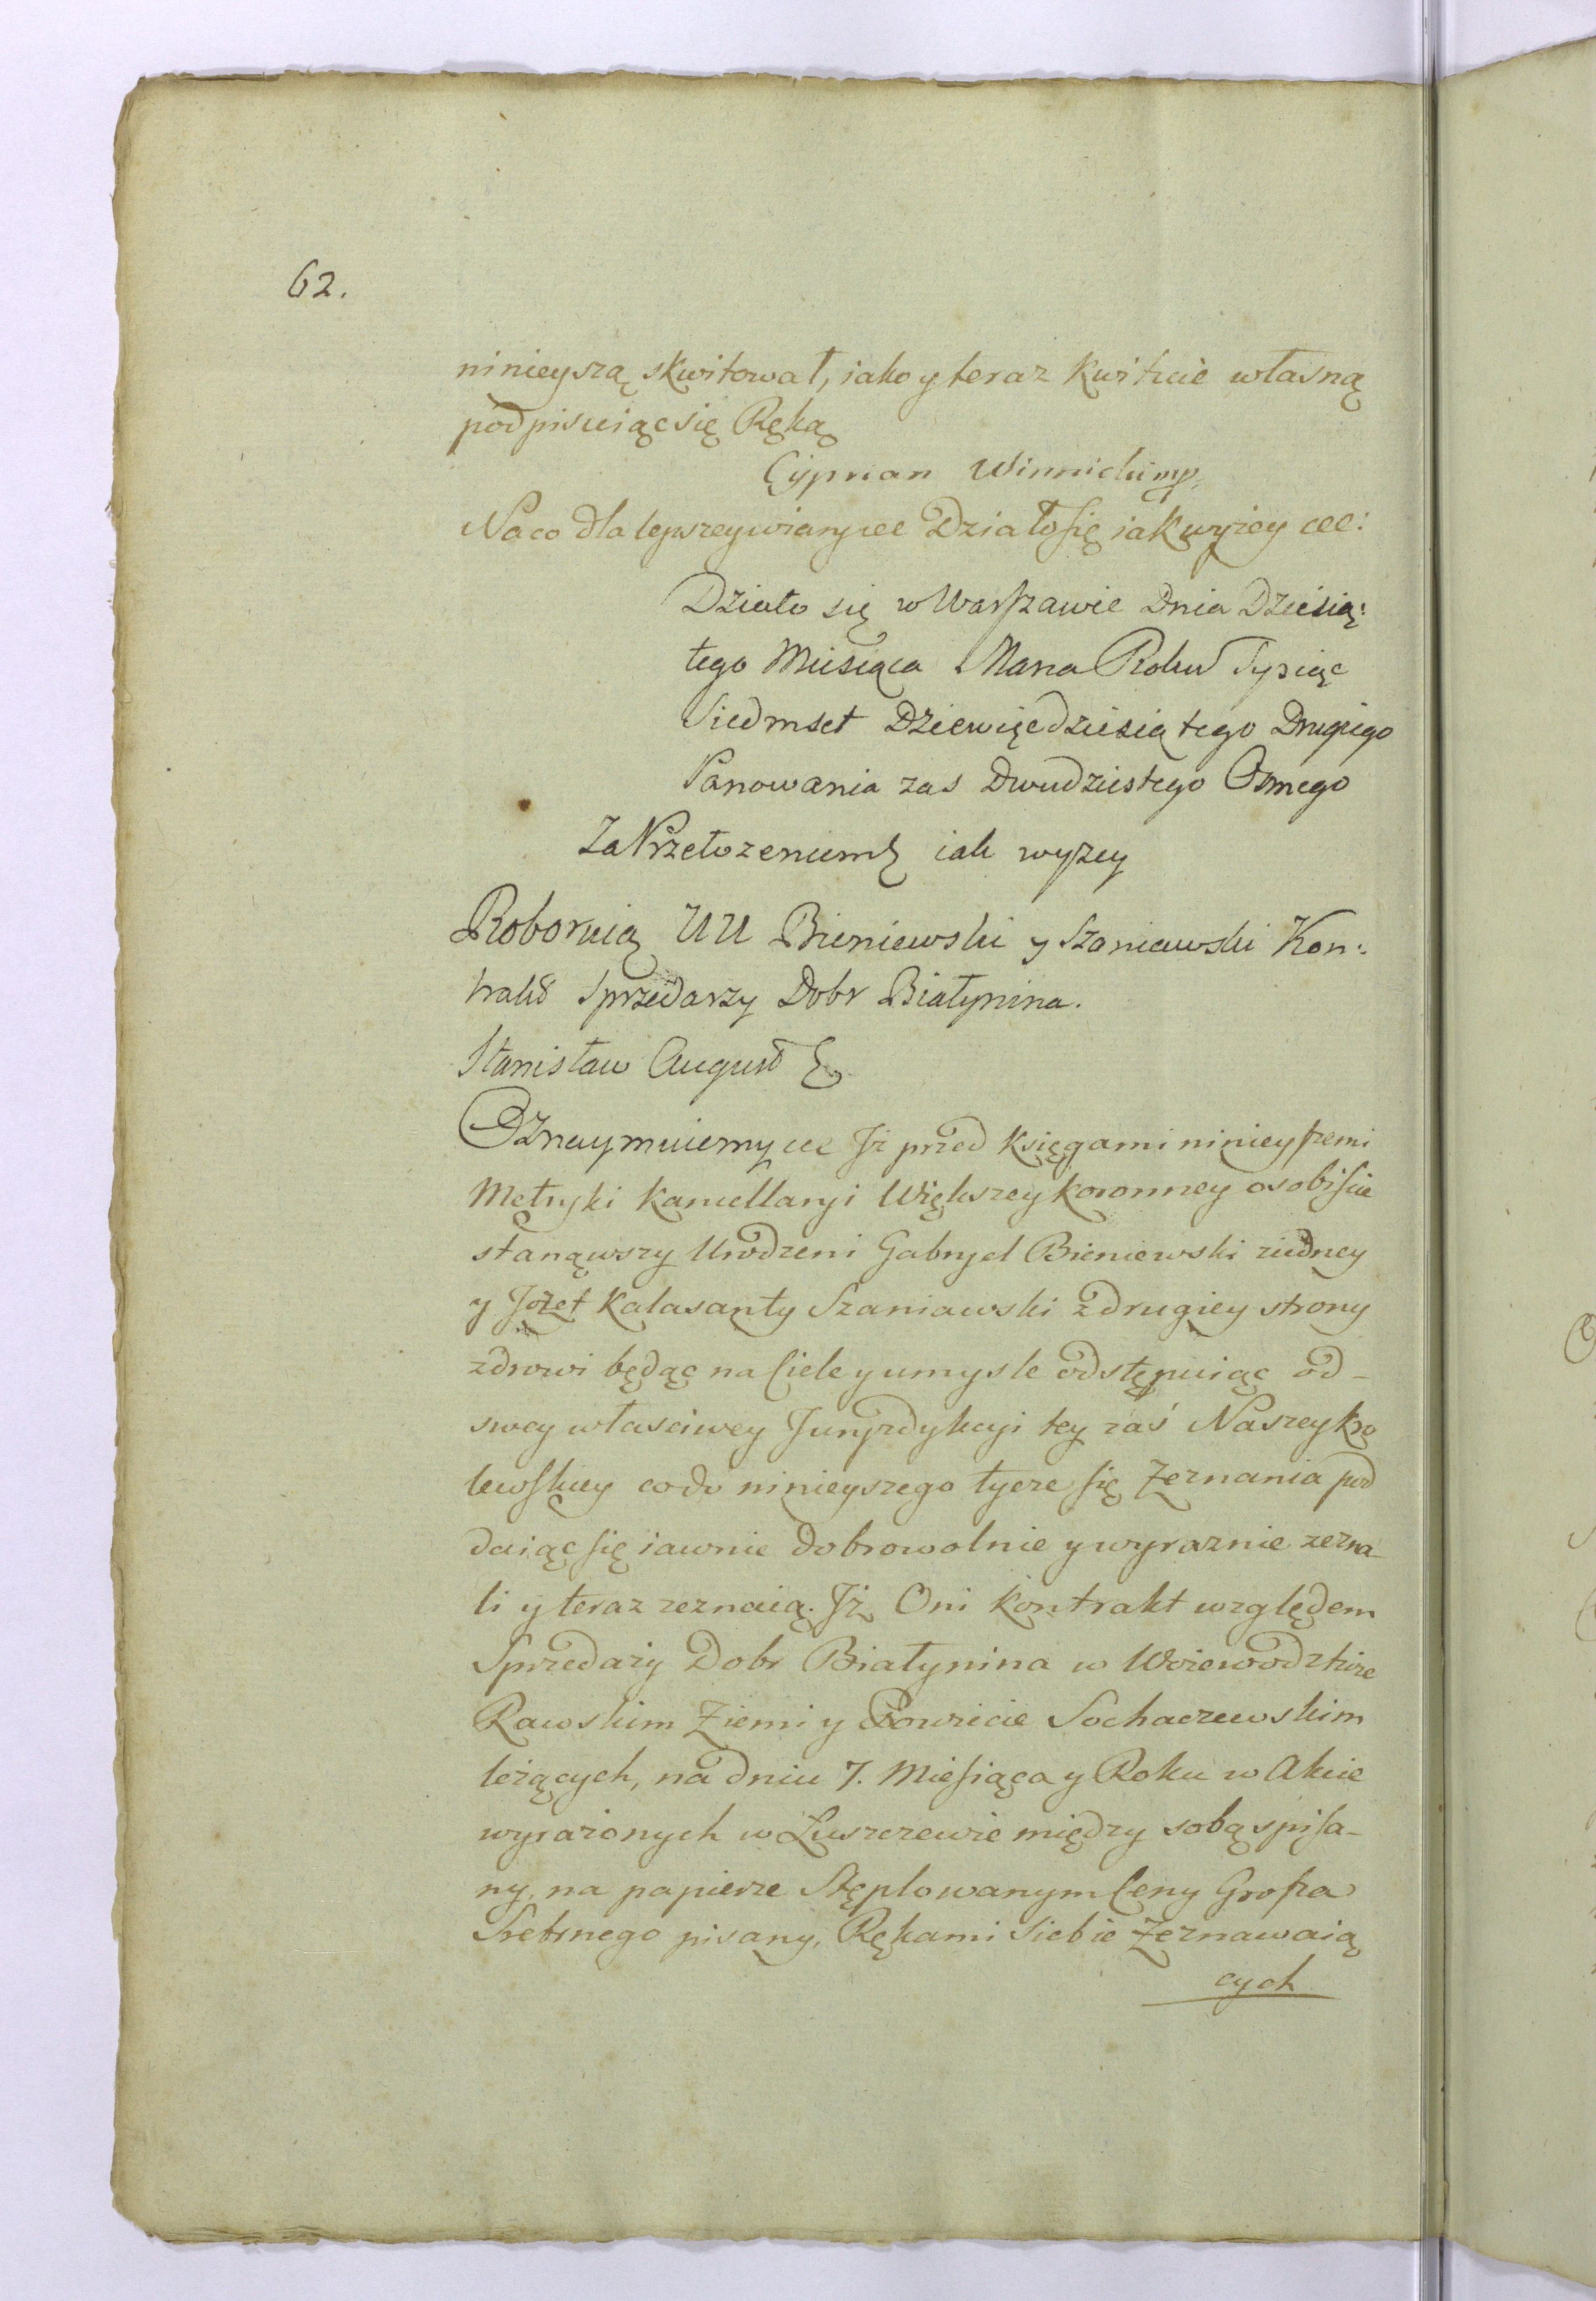 62.
ninieyszą skwitował, iako y teraz kwituie własną
podpisuiąc się Ręką
Cyprian Winnicki mp.
Na co dla lepszey wiary etc Działo się iak wyżey etc:
Działo się w Warszawie Dnia Dziesią:
tego Miesiąca Marca Roku Tysiąc
Siedmset Dziewięćdziesiątego Drugiego
Panowania zas Dwudziestego Osmego
Za Przełozeniem etc iak wyzey
Roboruią UU Bieniewski y Szaniawski Kon:
trakt Sprzedarzy Dobr Białynina.
Stanisław August etc
Oznaymuiemy etc Iż przed Księgami ninieyszemi
Metryki Kancellaryi Większey Koronney osobiście
stanąwszy Urodzeni Gabryel Bieniewski ziedney
y Jozef Kalasanty Szaniawski z drugiey strony
zdrowi będąc na Ciele y umysle odstępuiąc od -
swey własciwey Juryzdykcyi tey zaś Naszey Kró
lewskiey co do ninieyszego tycze się Zeznania pod
daiąc się iawnie dobrowolnie y wyraznie zezna-
li y teraz zeznaią. Iż Oni Kontrakt względem
Sprzedaży Dobr Białynina w Woiewodztwie
Rawskim Ziemi y Powiecie Sochaczewskim
leżących, na dniu 7. Miesiąca y Roku w Akcie
wyrażonych w Luszczewie między sobą spisa-
ny, na papierze Stęplowanym Ceny Grosza
Srebrnego pisany, Rękami Siebie Zeznawaią
cych